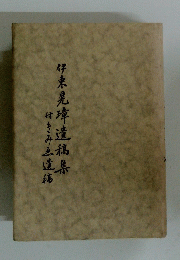 伊東晃璋遺稿集
付きみ恵遺稿